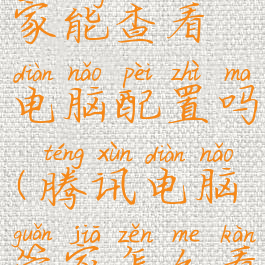 家能查看
diàn nǎo pèi zhì ma
电脑配置吗
téng xùn diàn nǎo
(腾讯电脑
guǎn jiā zěn me kàn
管家怎么看